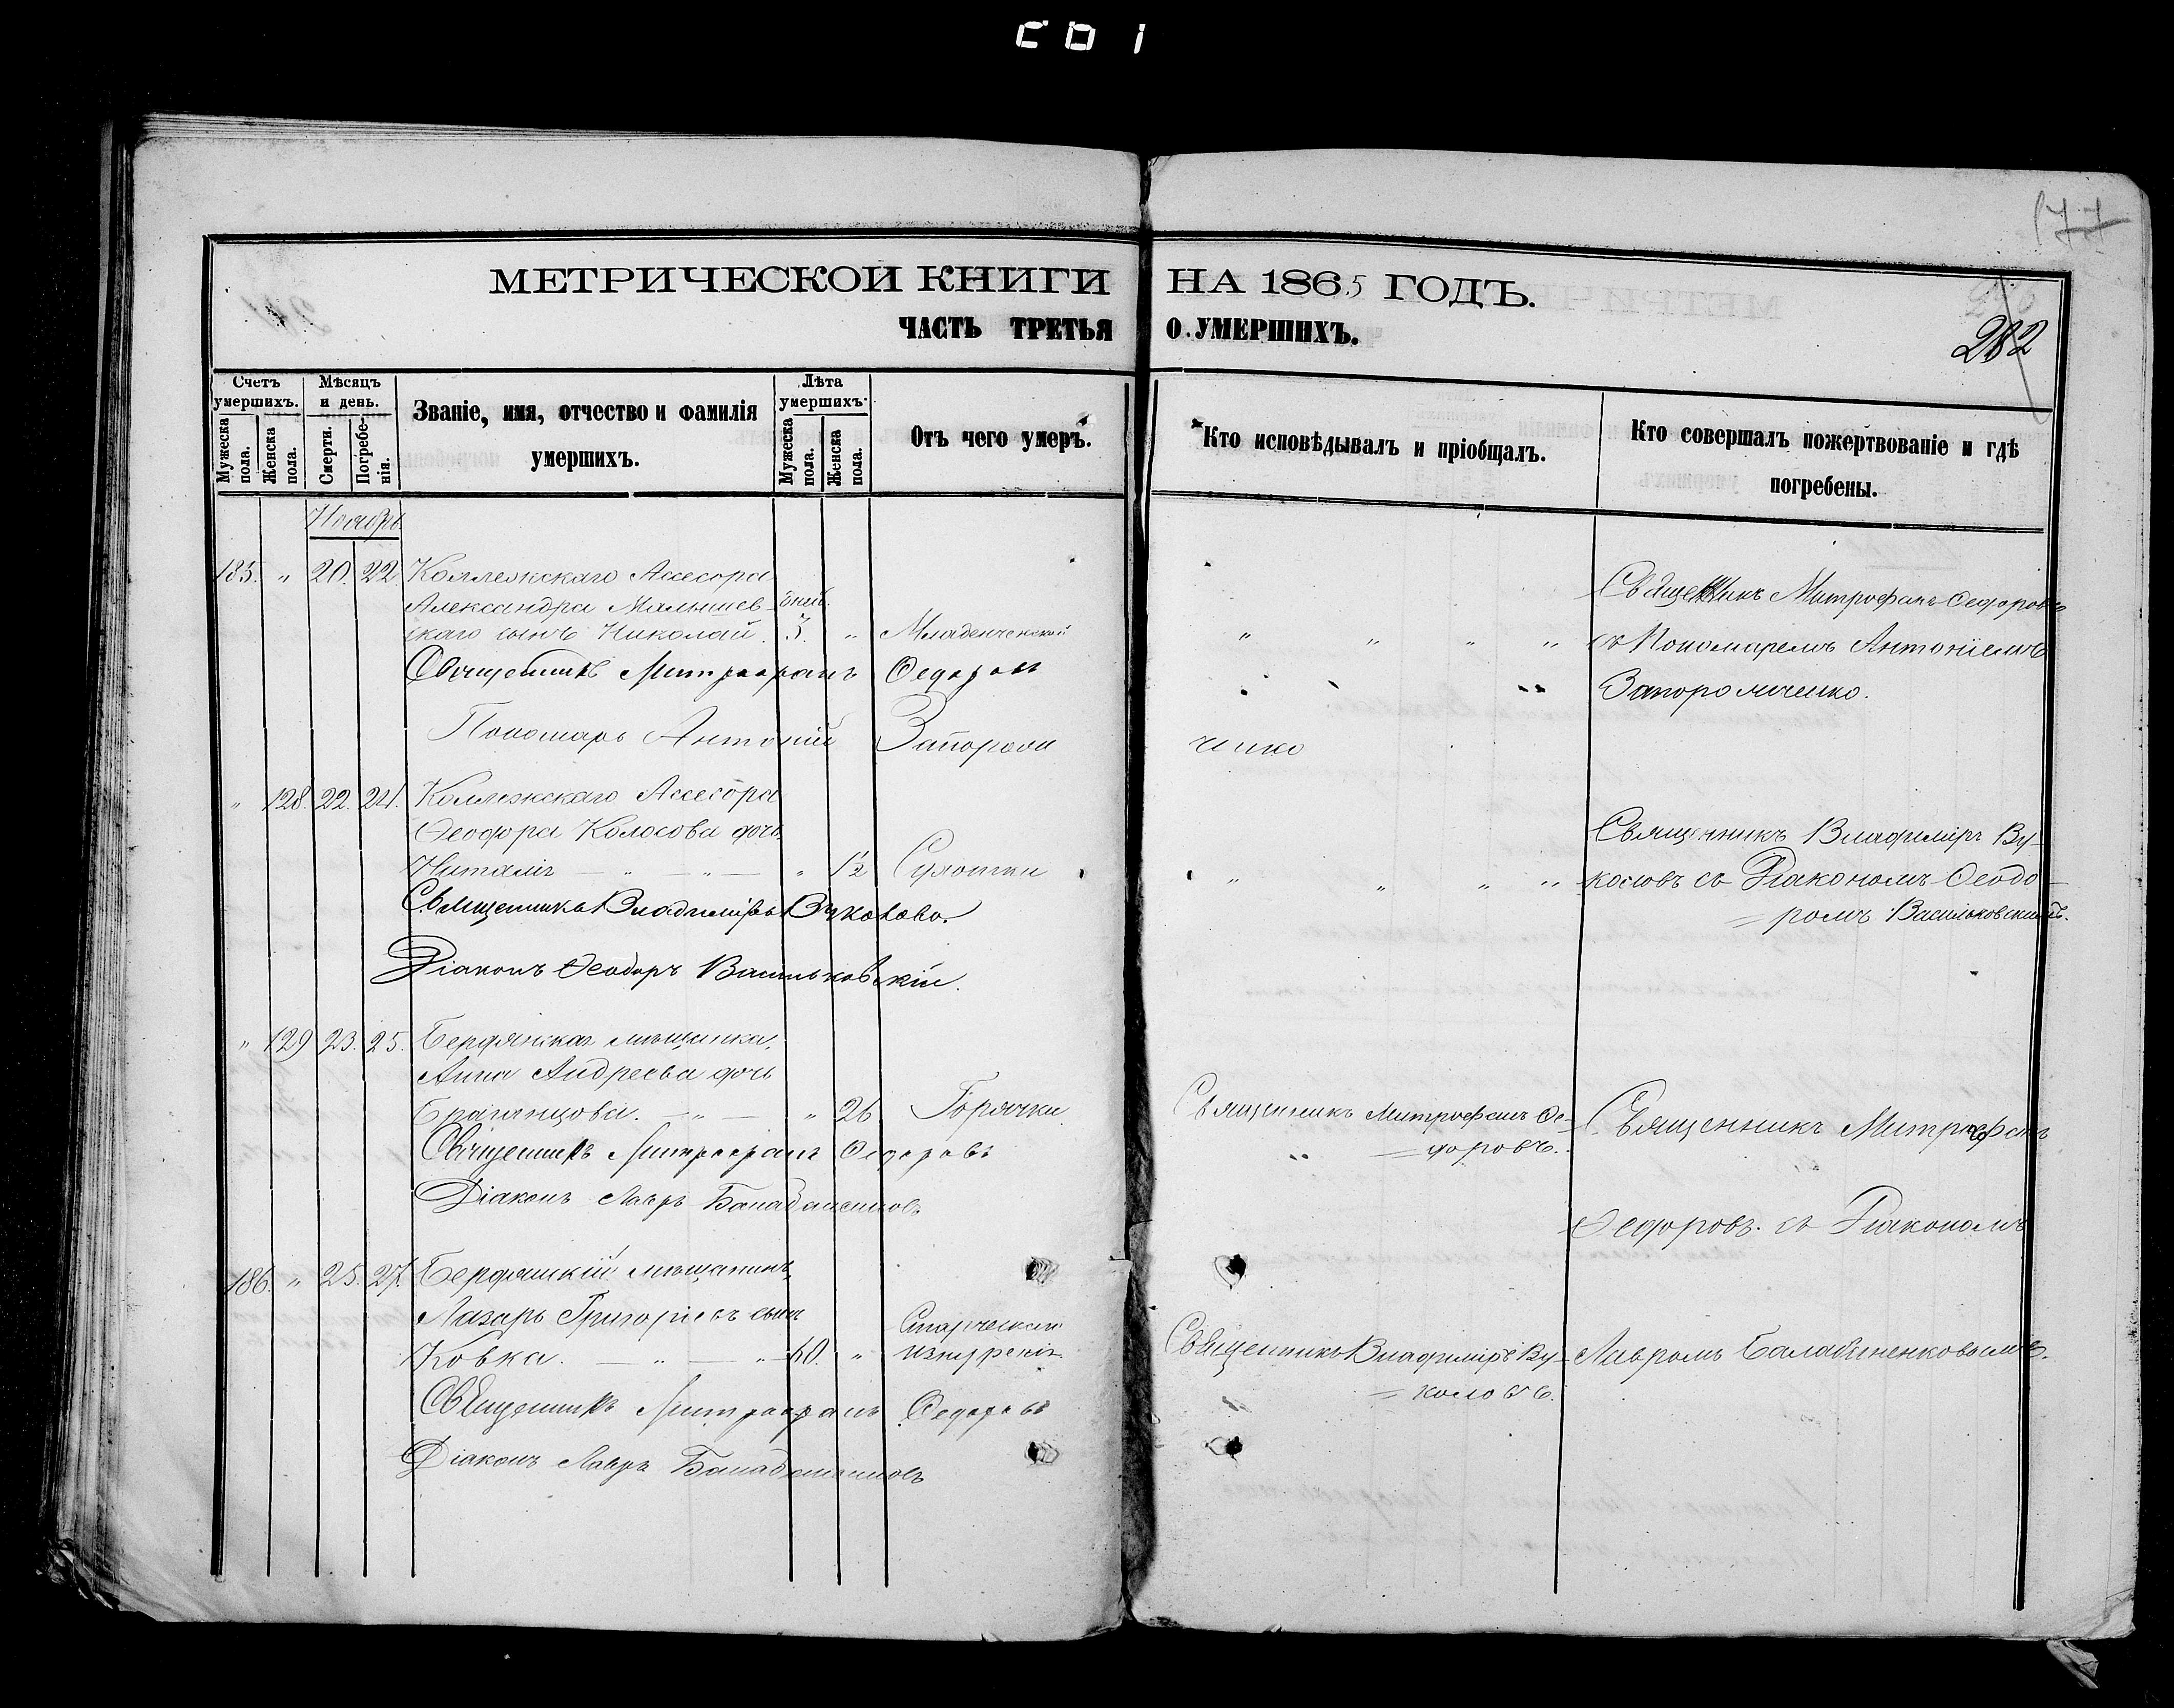 CD 1
177
МЕТРИЧЕСКОЙ КНИГИ НА 1865 ГОДЪ.
ЧАСТЬ ТРЕТЬЯ О УМЕРШИХЪ.
282
Счетъ умершихъ.
Мужеска пола.
Женска пола.
Мѣсяцъ и день.
Смерти.
Погребенія.
Званіе, имя, отчество и фамилія
умершихъ.
Лѣта умершихъ.
Мужеска пола.
Женска пола.
Отъ чего умеръ.
Кто исповѣдывалъ и пріобщалъ.
Кто совершалъ пожертвованіе и гдѣ
погребены.
Ноябрь
185. " 20. 22. Коллежскаго Ассесора
Александра Малышев- дней.
скаго сынъ Николай. 3. " Младенческой " " " "
Священникъ Митрофанъ Федоровъ
съ Пономаремъ Антоніемъ
Запорожченко.
Священникъ Митрофанъ Федоровъ
Пономарь Антоній Запорожченко
" 128. 22. 24. Коллежскаго Ассесора
Феодора Колосова дочь
Наталія — " — " — " 1½ Сухотки " " " "
Священникъ Владиміръ Ву-
коловъ съ Діакономъ Феодо-
= ромъ Васильковскимъ.
Священникъ Владиміръ Вуколовъ.
Діаконъ Феодоръ Васильковскій.
" 129 23. 25. Бердянская мѣщанка,
Анна Андреева дочь
Брагинцова. — " — " 26 Горячки
Священникъ Митрофанъ Фе-
= доровъ.
Священникъ Митрофанъ
Федоровъ. съ Діакономъ
Священникъ Митрофанъ Федоровъ
Діаконъ Лавръ
186. " 25. 27. Бердянскій мѣщанинъ,
Лазарь Григорьевъ сынъ
Ковка. — " — " — 60. " Старческаго
изнуренія
Священникъ Владиміръ Ву-
= коловъ.
Лавромъ Балабаненковымъ.
Священникъ Митрофанъ Федоровъ
Діаконъ Лавръ